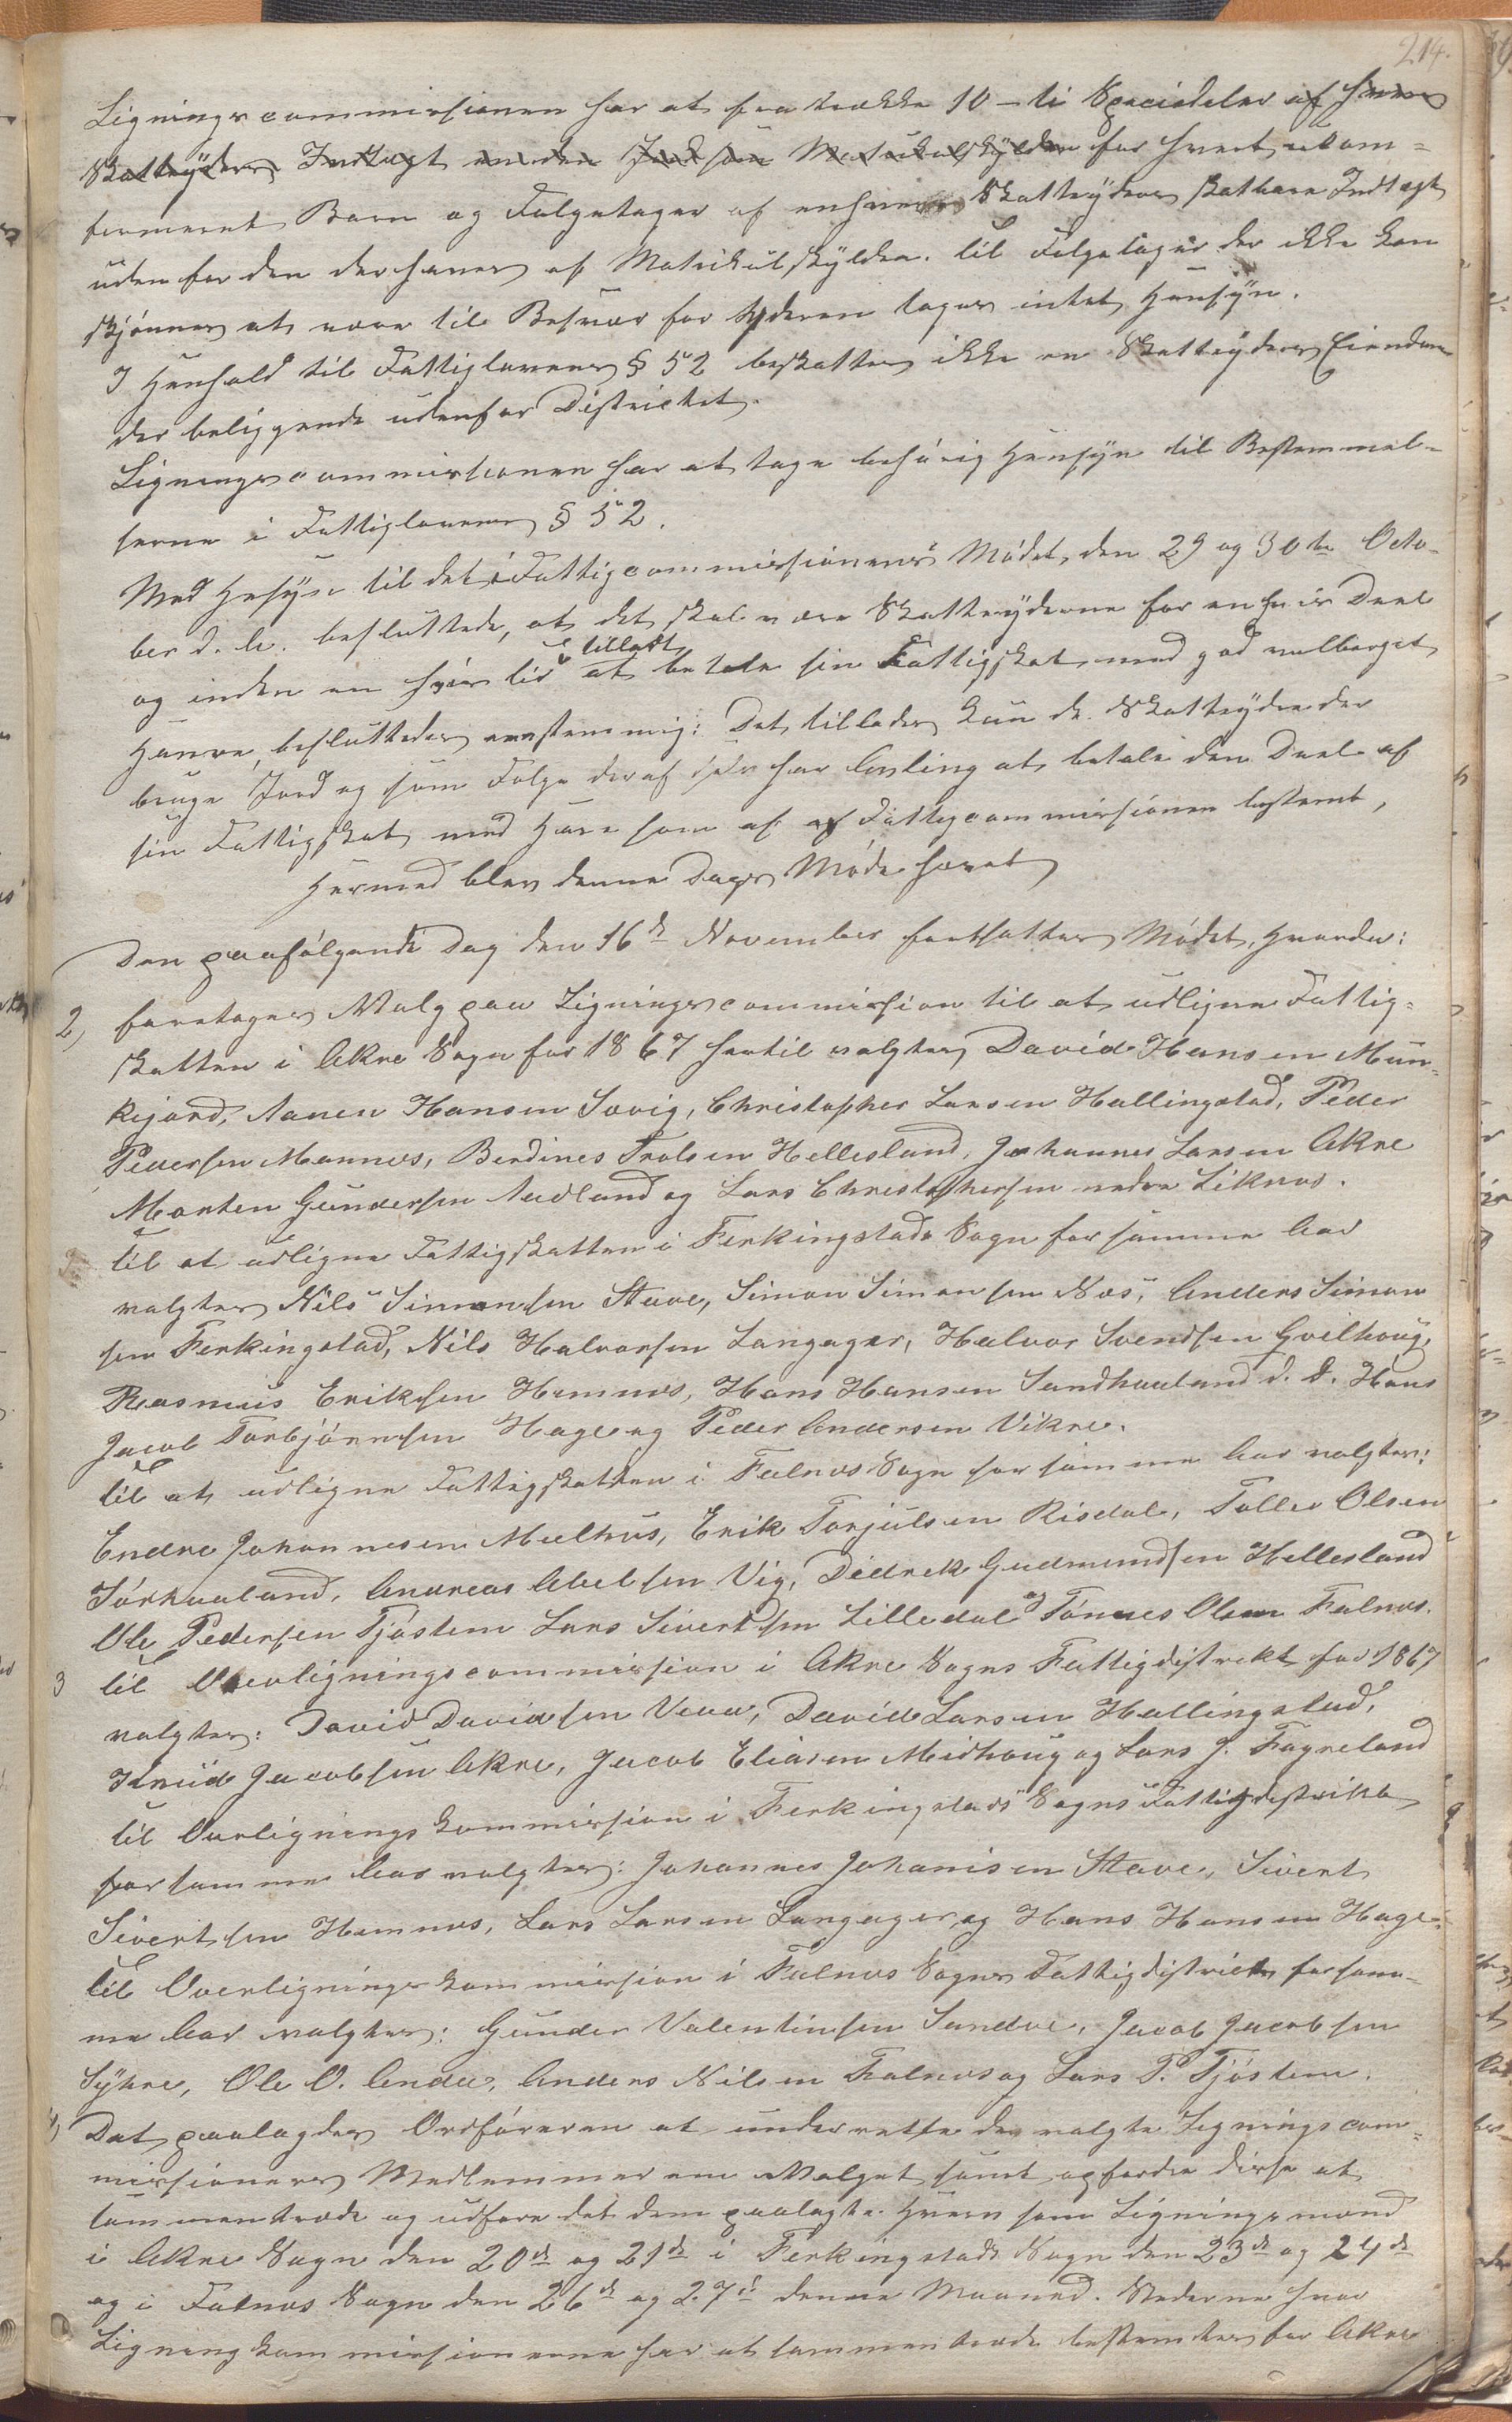 214.
Ligningscommissionen har at fra trække 10 - ti Speciedaler af hver
Skatteyders Indtægt uden den Jord som Matrikulskylden for hvert ukon-
firmeret Barn og Følgetager af enhver Skatteyders skatbare Indtægt
uden for den der haves af Matrikulskylden. Til Følgetager der ikke kan
skjønnes at være til Besvær for Yderen tages intet Hensyn.
I Henhold til Fattiglovens § 52 beskattes ikke en Skatteyders Eiendom
der beliggende udenfor Districtet.
Ligningscommissionen har at tage behørig Hensyn til Bestemmel-
serne i Fattiglovens § 52.
Med Hensyn til det i Fattigcommissionens Mødet, den 29 og 30te Octo-
ber d. A. besluttede, at det skal være Skatteyderne for en hvis Deel
og inden en hvis tid tilladt at betale sin Fattigskat med god velberget
Havre, besluttedes eenstemmig: Det tillades kun de Skatteydere der
bruge Jord og som Følge deraf selv har Avling at betale den Deel af
sin Fattigskat med Havre som af af Fattigcommissionen bestemt,
Hermed blev denne Dags Møde hævet
Den paafølgende Dag den 16de November fortsattes Mødet, hvorda:
2) foretages Valg paa Ligningscommission til at udligne Fattig-
skatten i Akre Sogn for 1867 hertil valgtes David Hansen Mun-
kejord, Aanen Hansen Sævig, Christopher Larsen Hallingstad, Peder
Pedersen Mannes, Berdines Trolsen Hellesland, Johannes Larsen Akre
Morten Gundersen Aadland og Lars Christophersen nedre Liknes.
Til at udligne Fattigskatten i Ferkingstads Sogn for samme Aar
valgtes Nils Simonsen Stave, Simon Simonsen Næs, Anders Simon
sen Ferkingstad, Nils Halvorsen Langager, Halvor Svendsen Qvilhoug,
Rasmus Eriksen Hemnes, Hans Hansen Sandhaaland d. d. Hans
Jacob Torbjørnsen Hage og Peder Andersen Vikre.
Til at udligne Fattigskatten i Falnes Sogn for samme Aar valgtes:
Endre Johannesen Mælhus, Erik Torjulsen Risdal, Tollev Olsen
Sørhaaland, Andreas Abelsen Vig, Didrek Gudmundsen Hellesland
Ole Pedersen Tjøstem Lars Sivertsen Lilledal og Tønnes Olsen Falnes.
3 Til Overligningscommission i Akre Sogns Fattigdistrikt for 1867
valgtes: David Davidsen Veaa, David Larsen Hallingstad,
Knud Jacobsen Akre, Jacob Eliasen Midhoug og Lars J. Fagreland
Til Overligningskommission i Ferkingstads Sogns Fattigdistrikt
for samme Aar valgtes: Johannes Johanisen Stave, Sivert
Sivertsen Hemnes, Lars Larsen Langager og Hans Hansen Hage.
Til Overligningskommission i Falnes Sogns Fattigdistrict for sam-
me Aar valgtes: Gunder Valentinsen Sandve, Jacob Jacobsen
Syhre, Ole O. Anda, Anders Nilsen Falnes og Lars P. Tjøstem.
4) Det paalagdes Ordføreren at underrette de valgte Ligningscom-
missioners Medlemmer om Valget samt opfordre disse at
sammentræde og udføre det dem paalagte Hverv som Ligningsmænd
i Akre Sogn den 20de og 21de i Ferkingstads Sogn den 23de og 24de
og i Falnes Sogn den 26de og 27de denne Maaned. Stederne hvor
Ligningskommissionerne har at sammentræde bestemtes for Akre